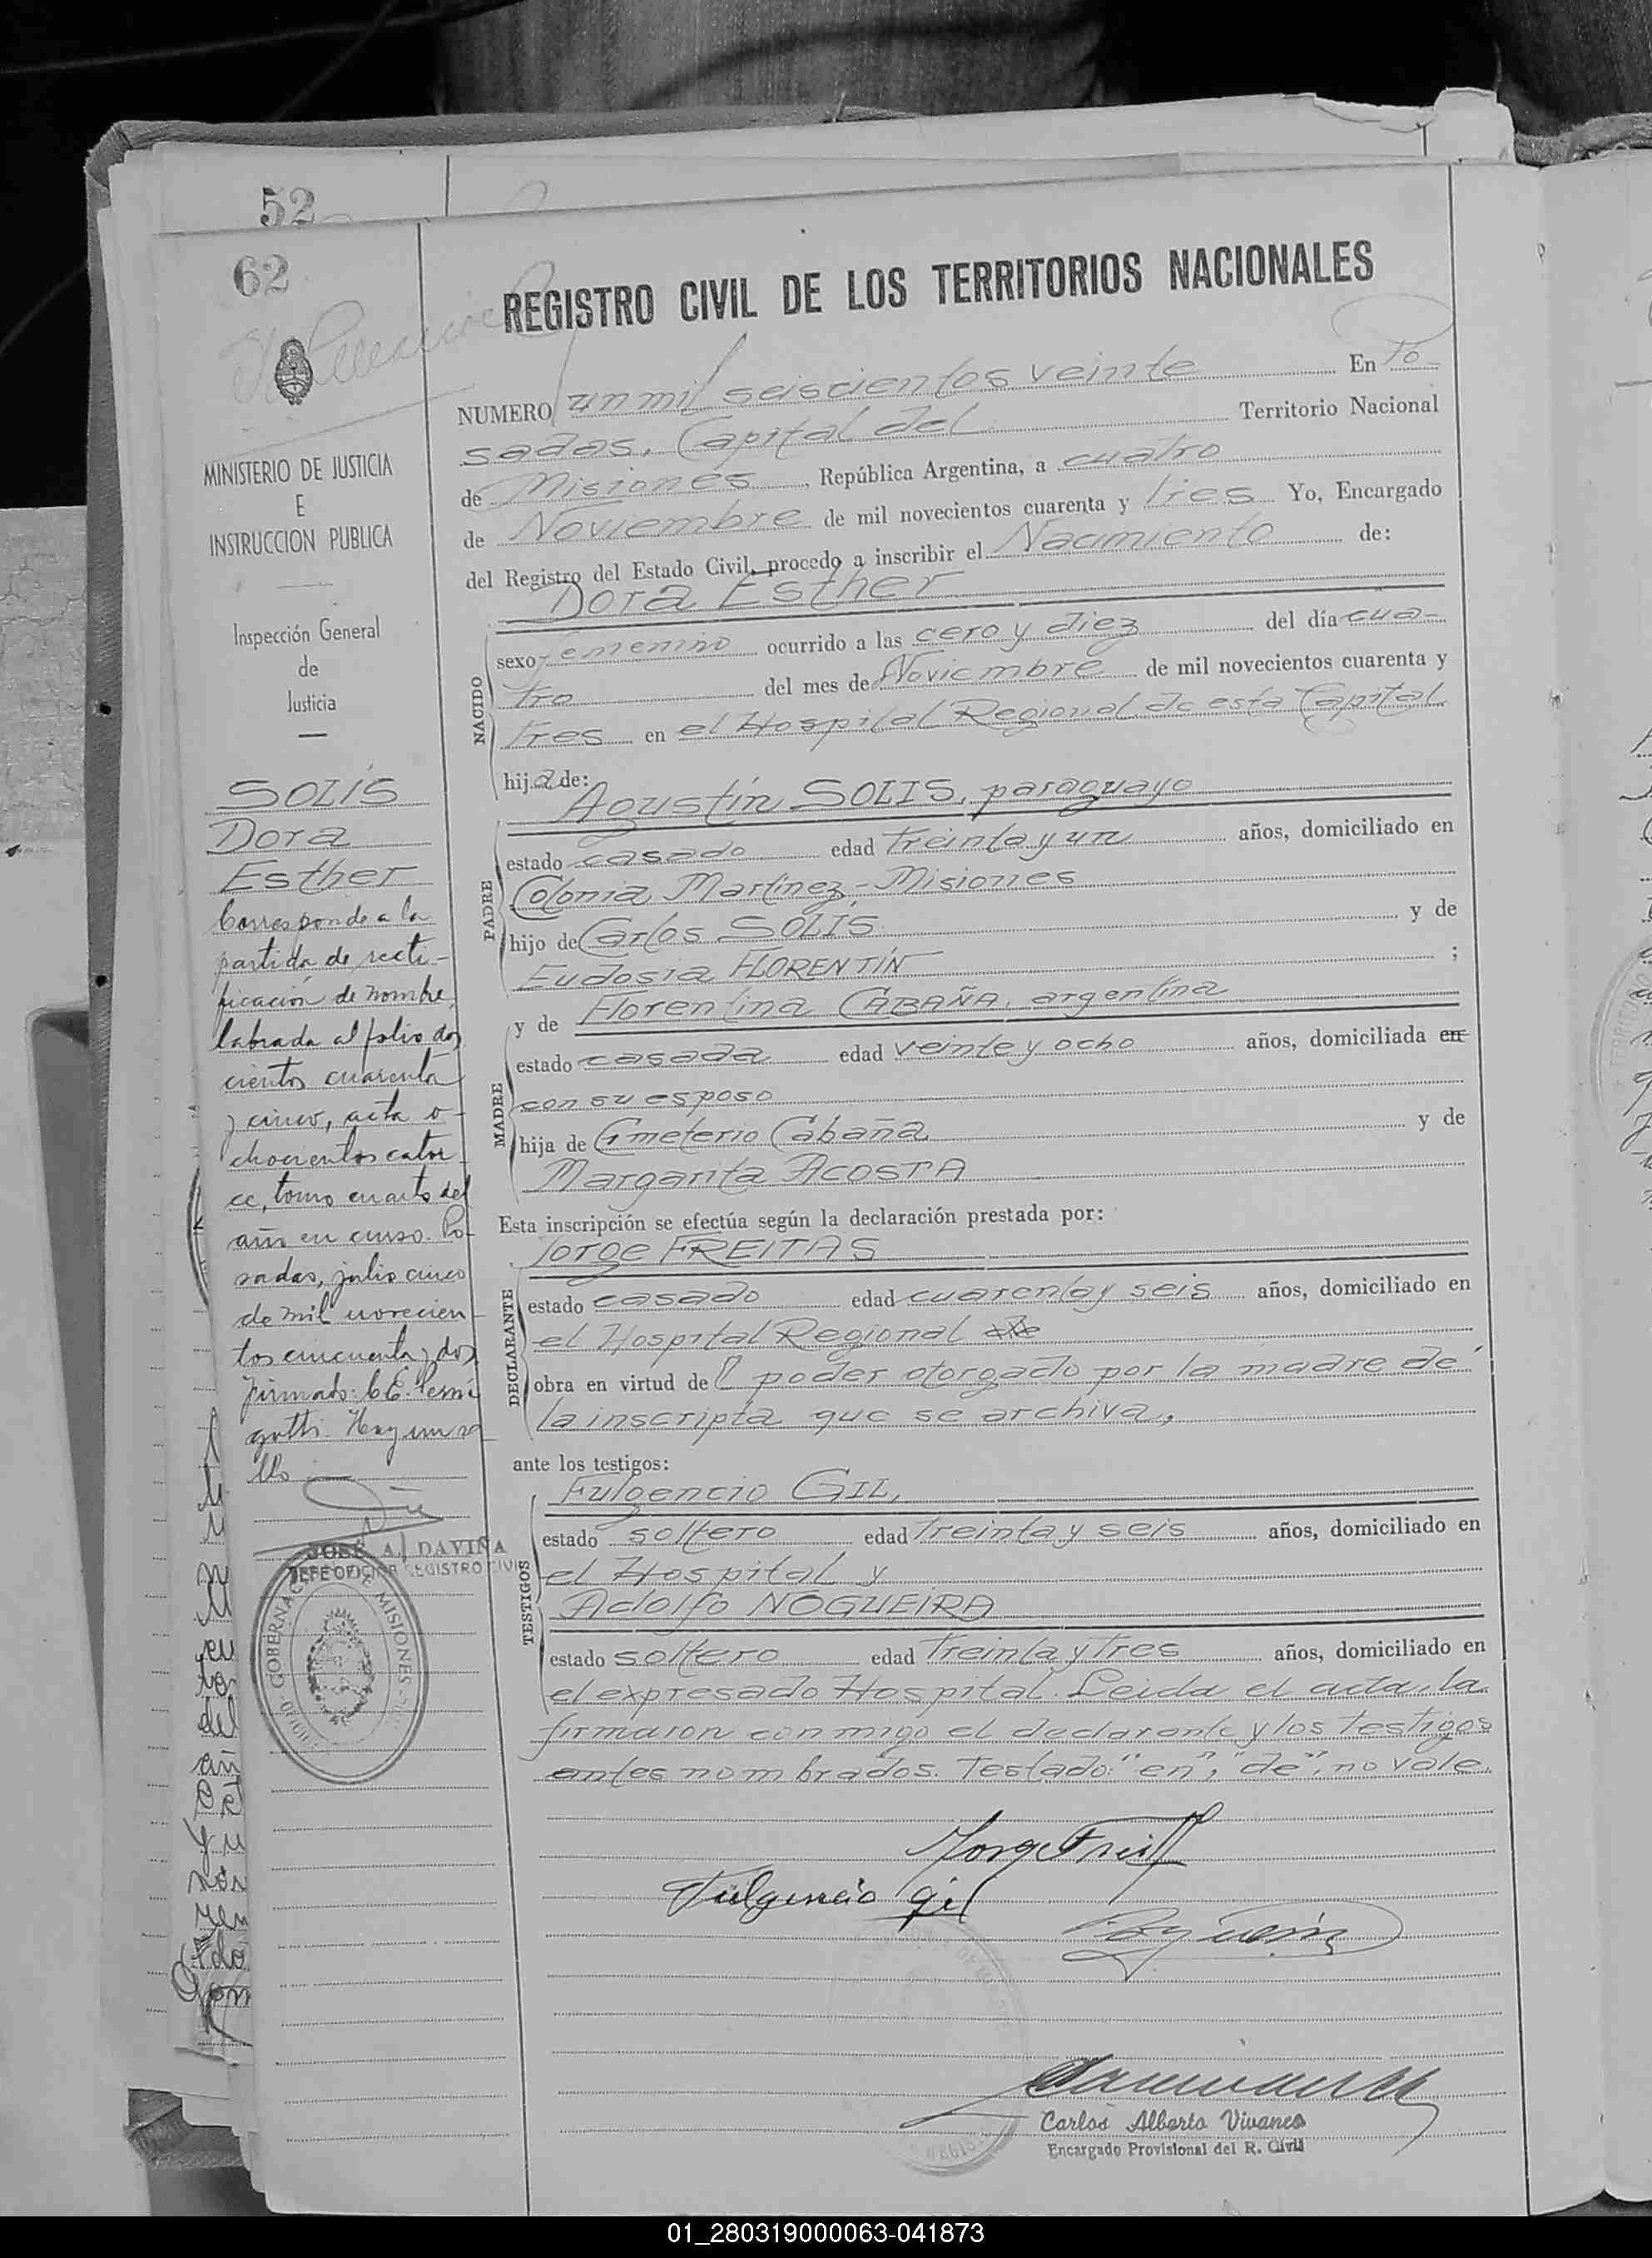 52
62
REGISTRO CIVIL DE LOS TERRITORIOS NACIONALES
MINISTERIO DE JUSTICIA
E
INSTRUCCION PUBLICA
Inspección General
de
Justicia
SOLÍS
Dora
Esther
Corresponde a la
partida de recti-
ficación de nombre,
labrada al folio dos
cientos cuarenta
y cinco, acta o-
chocientos cator-
ce, tomo cuarto del
año en curso. Po-
sadas, julio cinco
de mil novecien-
tos cincuenta y dos
firmado: C.E.
Hay un se
llo
JOSE A. DAVIÑA
JEFE OFICINA REGISTRO CIVIL
GOBERNACION DE MISIONES
NUMERO un mil seiscientos veinte En Po-
sadas, Capital del Territorio Nacional
de Misiones, República Argentina, a cuatro
de Noviembre de mil novecientos cuarenta y tres Yo, Encargado
del Registro del Estado Civil, procedo a inscribir el Nacimiento de:
Dora Esther
NACIDO
sexo femenino ocurrido a las cero y diez del día cua-
tro del mes de Noviembre de mil novecientos cuarenta y
tres en el Hospital Regional de esta Capital
hija de:
Agustín SOLIS, paraguayo
PADRE
estado casado edad treinta y un años, domiciliado en
Colonia Martínez - Misiones
hijo de Carlos SOLÍS y de
Eudosia FLORENTÍN ;
y de Florentina CABAÑA, argentina
MADRE
estado casada edad veinte y ocho años, domiciliada en
con su esposo
hija de Emeterio Cabaña y de
Margarita ACOSTA
Esta inscripción se efectúa según la declaración prestada por:
Jorge FREITAS
DECLARANTE
estado casado edad cuarenta y seis años, domiciliado en
el Hospital Regional de
obra en virtud del poder otorgado por la madre de
la inscripta que se archiva,
ante los testigos:
Fulgencio GIL,
TESTIGOS
estado soltero edad treinta y seis años, domiciliado en
el Hospital y
Adolfo NOGUEIRA
estado soltero edad treinta y tres años, domiciliado en
el expresado Hospital. Leida el acta, la
firmaron conmigo el declarante y los testigos
antes nombrados. Testado: "en", "de", no vale.
Jorge Freitas
Fulgencio gil
Carlos Alberto Vivanco
Encargado Provisional del R. Civil
01_280319000063-041873